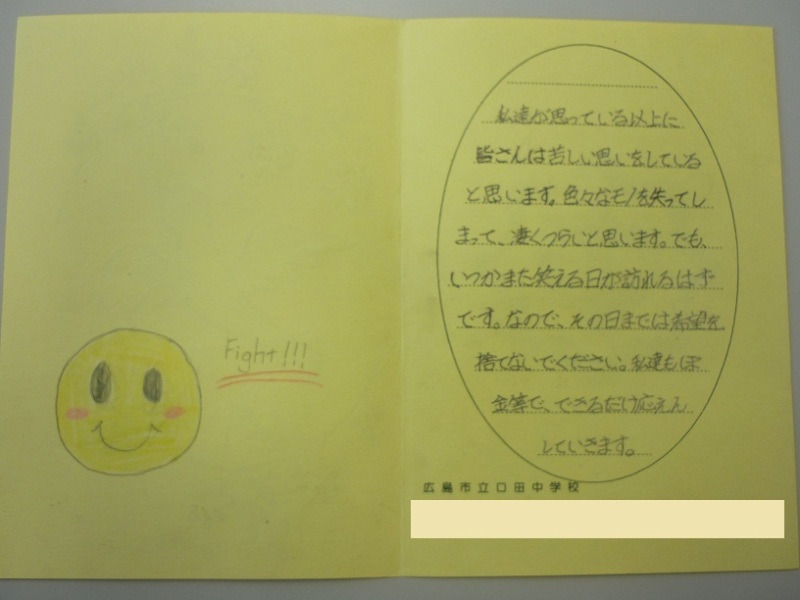 Fight!!!
私達が思っている以上に
皆さんは苦しい思いをしている
と思います。色々なモノを失ってし
まって、凄くつらいと思います。でも、
いつかまた笑える日が訪れるはず
です。なので、その日までは希望を
捨てないでください。私達もぼ
金等で、できるだけ応えん
していきます。
広島市立口田中学校